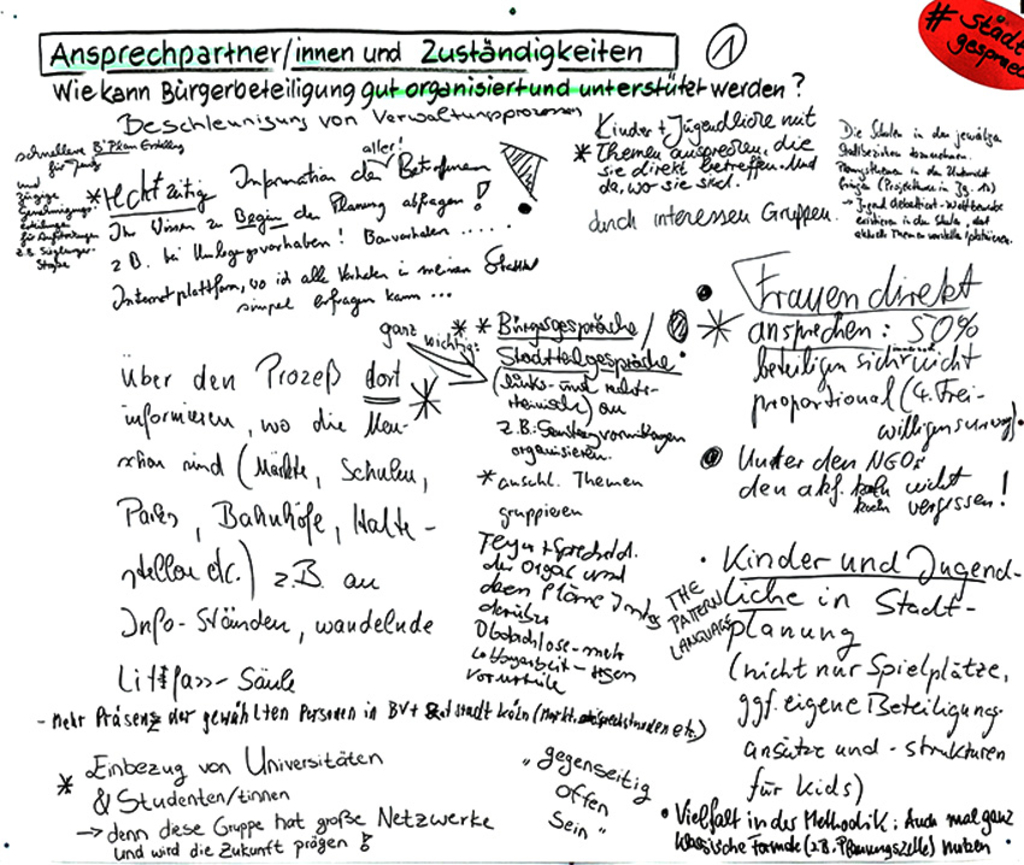 # Städt
gesprä
Ansprechpartner/innen und Zuständigkeiten
1
Wie kann Bürgerbeteiligung gut organisiert und unterstützt werden?
Beschleunigung von Verwaltungsprozessen
schnellere B'Plan Erstellung
und
zügige
Genehmigungs-
z.B.
Straße
aller!
*rechtzeitig Information der Betroffenen
Ihr Wissen zu Beginn der Planung abfragen!
z B. bei Umlegungsvorhaben! Bauvorhaben .....
Internetplattform, wo ich alle Vorhaben in meinem Stadtteil
simpel erfragen kann ...
Kinder + Jugendliche mit
* Themen ansprechen, die
sie direkt betreffen. Und
da, wo sie sind.
durch interessen Gruppen.
Die Schulen in den jeweiligen
Stadtbezirken
in den Unterricht
bringen (
→ Jugend debattiert-Wettbewerbe
existieren in der Schule, dort
aktuelle Themen
• Frauen direkt
ansprechen: 50%
beteiligen sich nicht
proportional (4. Frei-
willigensurvey).
• Unter den NGOs
den akf. köln nicht
köln vergessen!
ganz
wichtig:
* * Bürgergespräche /
Stadtteilgespräche
(links- und rechts-
rheinisch) an
z.B.: Samstagvormittagen
organisieren.
* anschl. Themen
gruppieren
der Orgas und
deren Pläne
darüber
Obdachlose - mehr
Lobbyarbeit - gegen
Vorurteile
über den Prozeß dort
informieren, wo die Men-
schen sind (Märkte, Schulen,
Parks, Bahnhöfe, Halte-
stellen etc.) z.B. an
Info-Ständen, wandelnde
Litfass-Säule
THE
PATTERN
LANGUAGE
• Kinder und Jugend-
liche in Stadt-
planung
(nicht nur Spielplätze,
ggf. eigene Beteiligung-
ansätze und -strukturen
für Kids)
- mehr Präsenz der gewählten Personen in BV + Rat stadt köln (Markt, sprechstunden etc.)
* Einbezug von Universitäten
& Studenten/tinnen
→ denn diese Gruppe hat große Netzwerke
und wird die Zukunft prägen!
" gegenseitig
offen
sein "
• Vielfalt in der Methodik: Auch mal ganz
klassische Formate (z.B. Planungszelle) nutzen